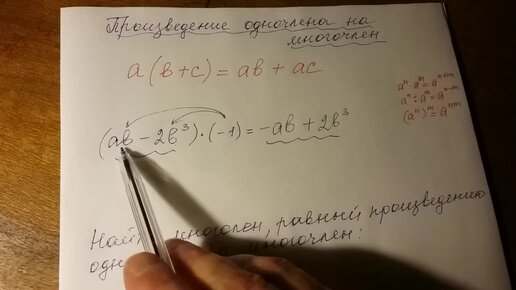 Произведение одночлена на
многочлен
a(b+c)=ab+ac
aⁿ·aᵐ=aⁿ⁺ᵐ
aⁿ:aᵐ=aⁿ⁻ᵐ
(aⁿ)ᵐ=aⁿᵐ
(ab-2b³)·(-1)=-ab+2b³
многочлен, равный произведению
многочлен: